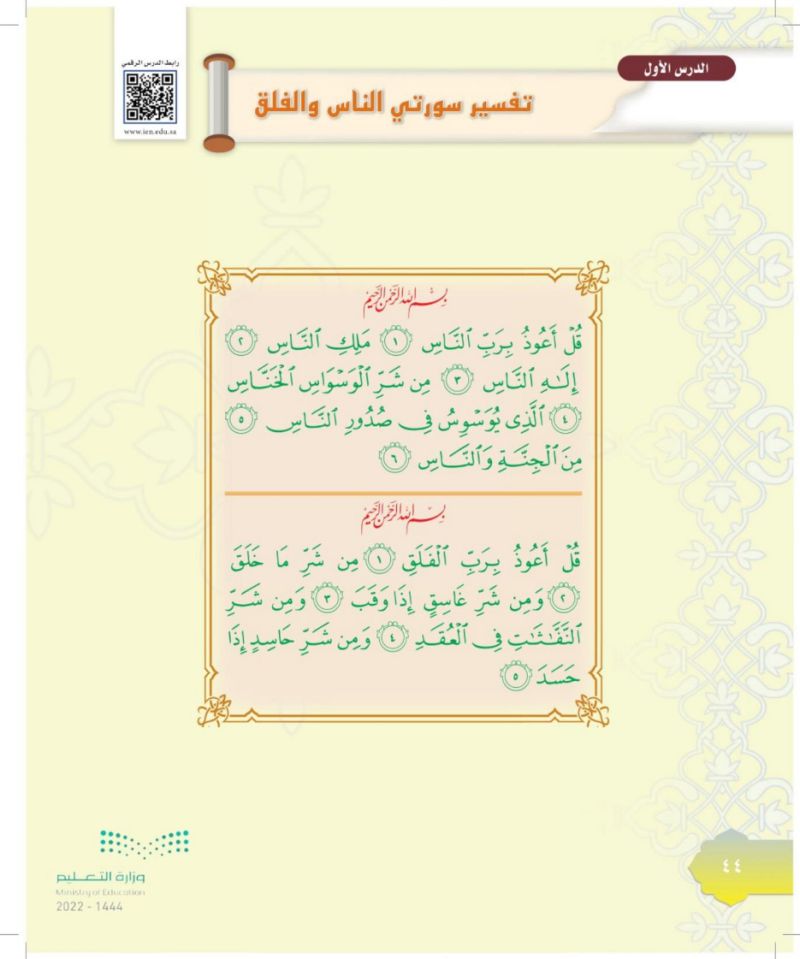 الدرس الأول
رابط الدرس الرقمي
www.ien.edu.sa
تفسير سورتي الناس والفلق
بِسْمِ اللَّهِ الرَّحْمَٰنِ الرَّحِيمِ
قُلْ أَعُوذُ بِرَبِّ ٱلنَّاسِ ١ مَلِكِ ٱلنَّاسِ ٢
إِلَٰهِ ٱلنَّاسِ ٣ مِن شَرِّ ٱلْوَسْوَاسِ ٱلْخَنَّاسِ
٤ ٱلَّذِى يُوَسْوِسُ فِى صُدُورِ ٱلنَّاسِ ٥
مِنَ ٱلْجِنَّةِ وَٱلنَّاسِ ٦
بِسْمِ اللَّهِ الرَّحْمَٰنِ الرَّحِيمِ
قُلْ أَعُوذُ بِرَبِّ ٱلْفَلَقِ ١ مِن شَرِّ مَا خَلَقَ
٢ وَمِن شَرِّ غَاسِقٍ إِذَا وَقَبَ ٣ وَمِن شَرِّ
ٱلنَّفَّٰثَٰتِ فِى ٱلْعُقَدِ ٤ وَمِن شَرِّ حَاسِدٍ إِذَا
حَسَدَ ٥
وزارة التعليم
Ministry of Education
2022 - 1444
٤٤